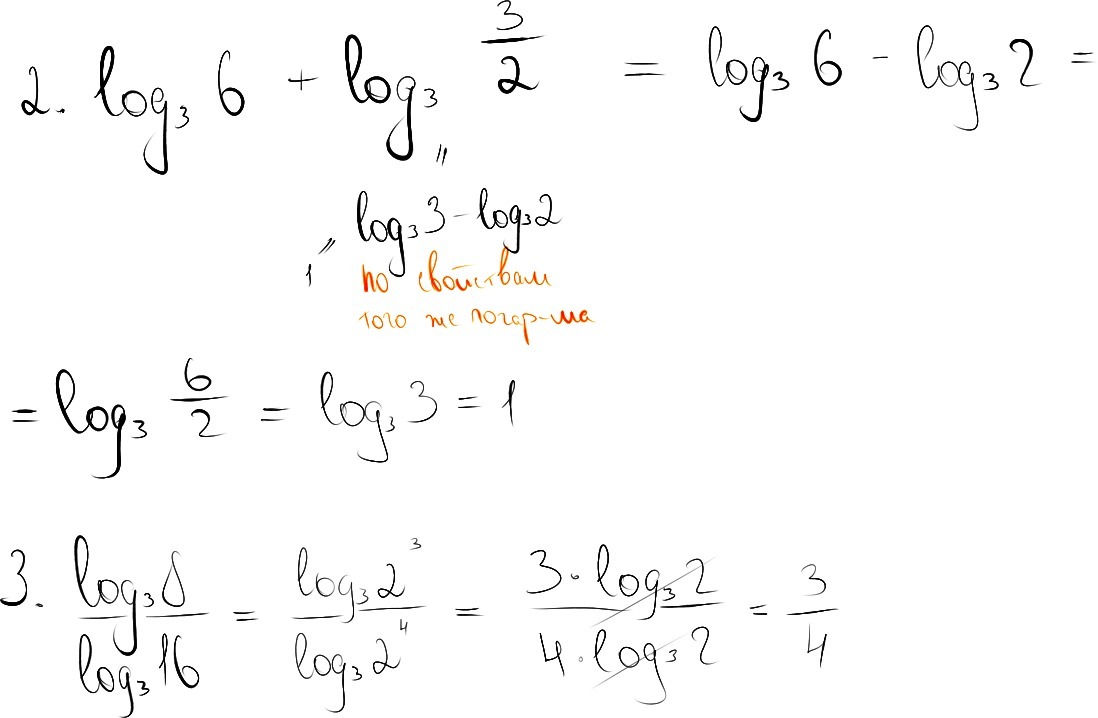 2. log₃ 6 + log₃ 3/2 = log₃ 6 - log₃ 2 =
"
log₃ 3 - log₃ 2
1 "
по свойствам
того же логар-ма
= log₃ 6/2 = log₃ 3 = 1
3. log₃ 8 / log₃ 16 = log₃ 2³ / log₃ 2⁴ = 3 · log₃ 2 / 4 · log₃ 2 = 3/4